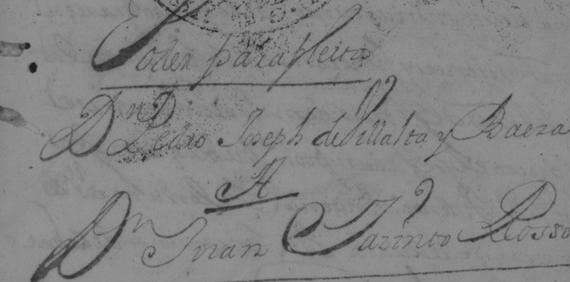 Poder para pleitos
Dn Pedro Joseph de Villalta y Baeza
A
Dn Juan Jazinto Rosso